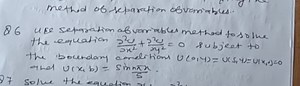 method of separation of variables.
86 use separation of variables method to solve
the equation ∂²u/∂x² + ∂²u/∂y² = 0 subject to
the boundary conditions U(0,y) = U(l,y) = U(x,0)=0
and U(x,b) = sin nπx/l
87 solve the equation